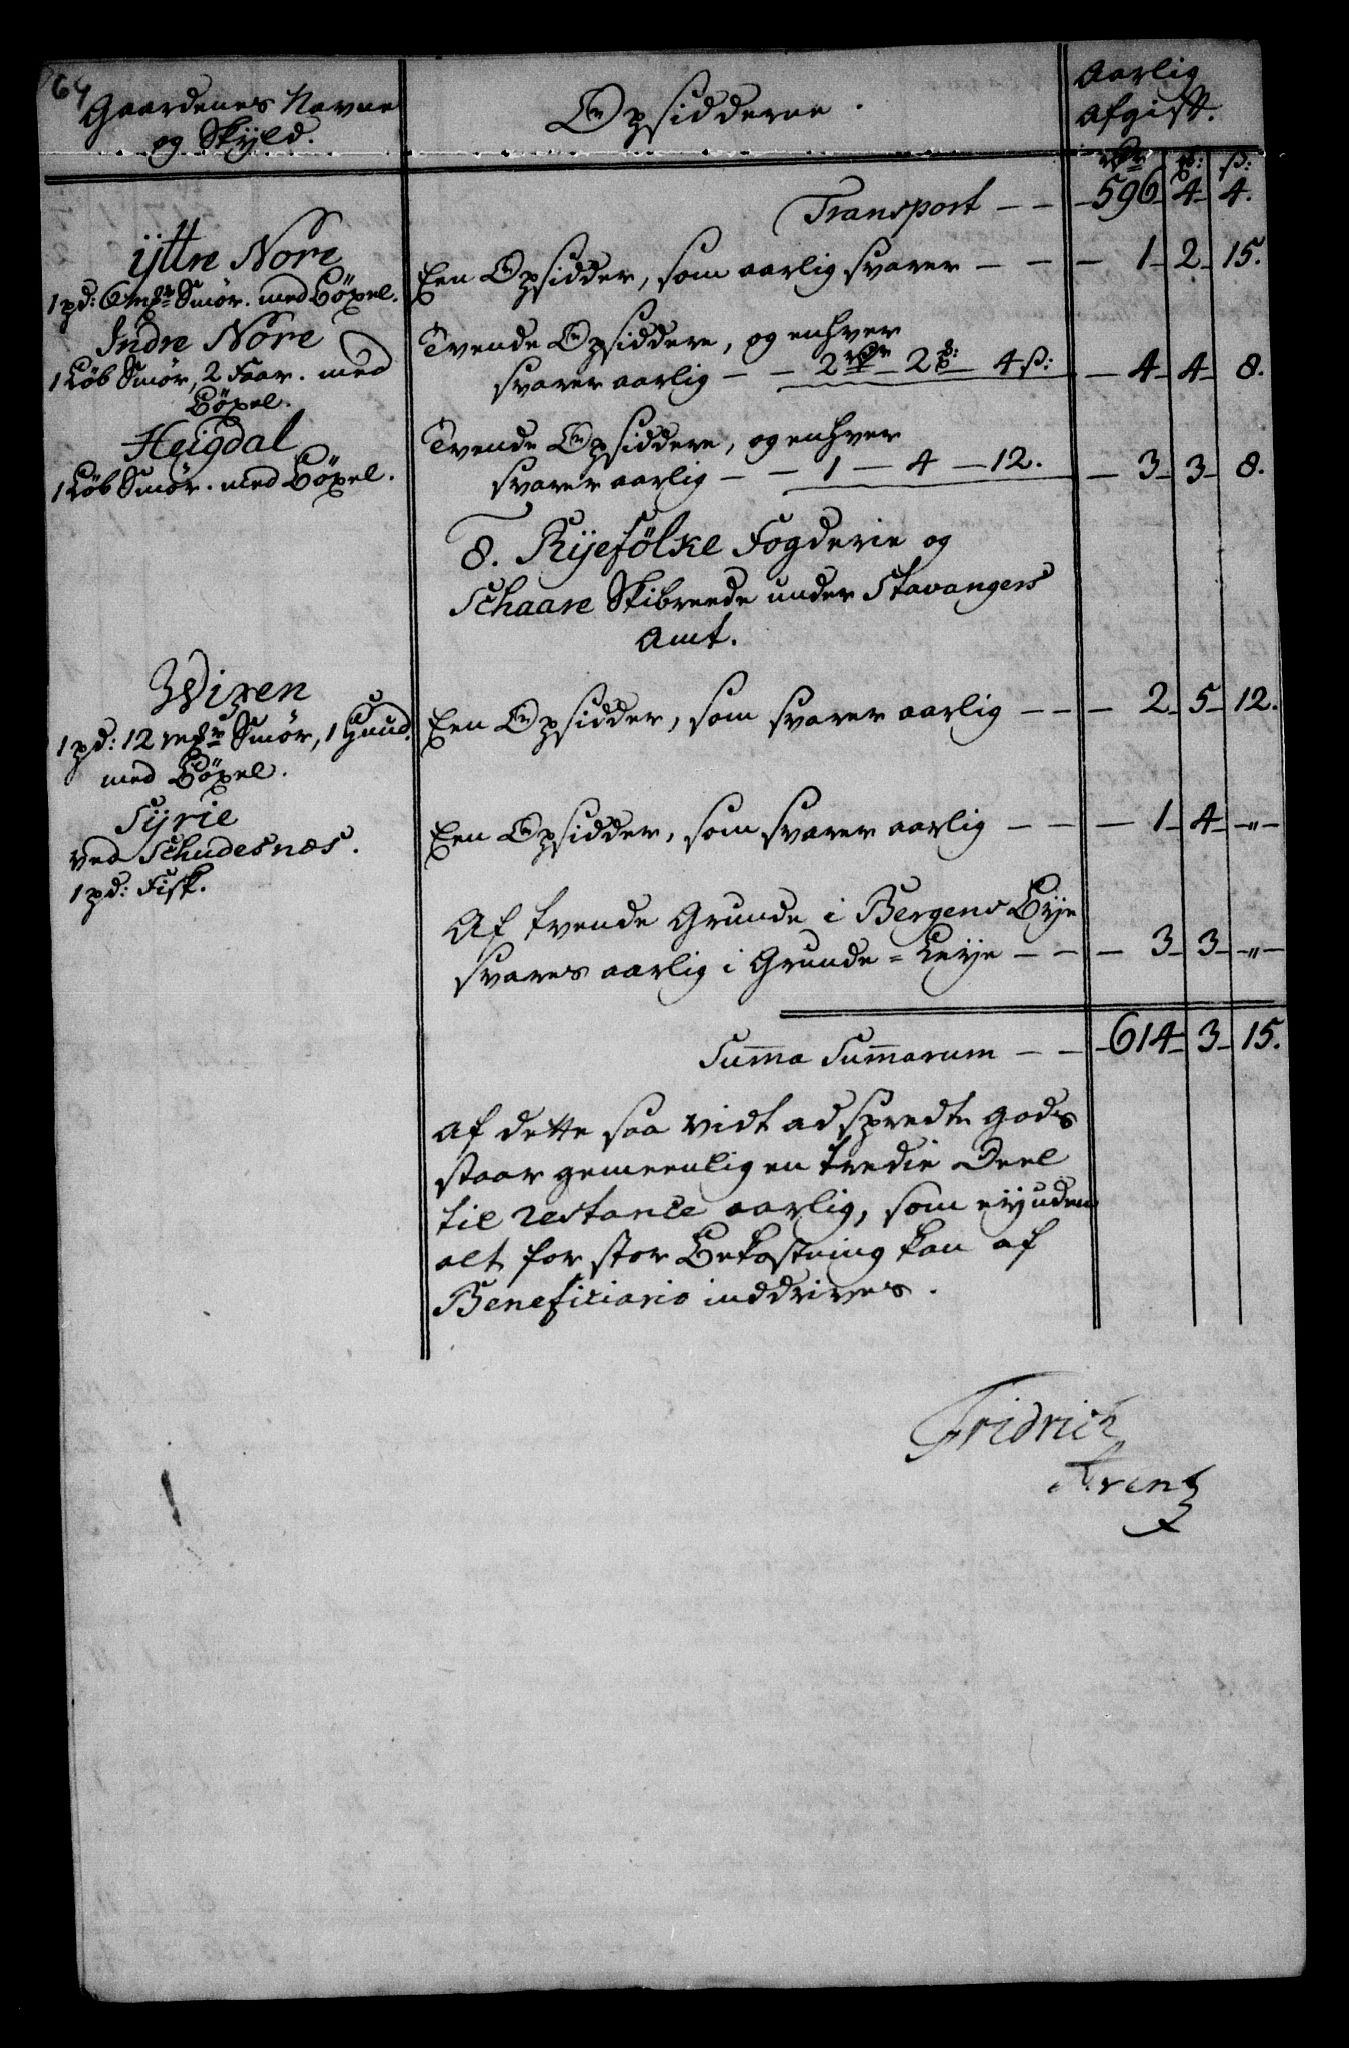 64
Gaardenes Navne
og Skyld.
Opsidderne.
Aarlig
Afgift.
rdr mk: s:
Transport — — 596 4 4.
Ÿttre Nore
1 pd: 6 mkr Smör. med Böxel.
Een Opsidder, som aarlig svarer — — 1 2 15.
Indre Nore
1 Löb Smör, 2 Faar. med
Böxel.
Tvende Opsiddere, og enhver
svarer aarlig — — 2 rdr — 2 mk: — 4 s: — 4 4 8.
Heigdal
1 Löb Smör. med Böxel.
Tvende Opsiddere, og enhver
svarer aarlig — — 1 — 4 — 12. — 3 3 8.
8. Rÿefölke Fogderie og
Schaare Skibreede under Stavangers
Amt.
Wixen
1 pd: 12 mkr Smör, 1 Huud.
med Böxel.
Een Opsidder, som svarer aarlig — — 2 5 12.
Syrie
ved Schudesnæs.
1 pd: Fisk.
Een Opsidder, som svarer aarlig — — 1 4 — " —
Af tvende Grunde i Bergens Bÿe
svares aarlig i Grunde = Leÿe — — 3 3 — " —
Summa Summarum — — 614 3 15.
Af dette saa vidt adspredte Gods
staar gemeenlig en tredie Deel
til restance aarlig, som eÿ uden
alt for stor Bekostning kan af
Beneficiario inddrives.
Fridrich
Arentz